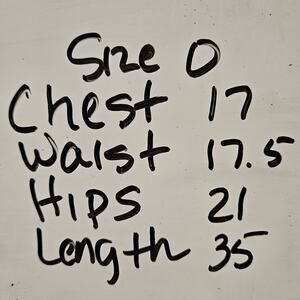 Size 0
Chest 17
Waist 17.5
Hips 21
Length 35